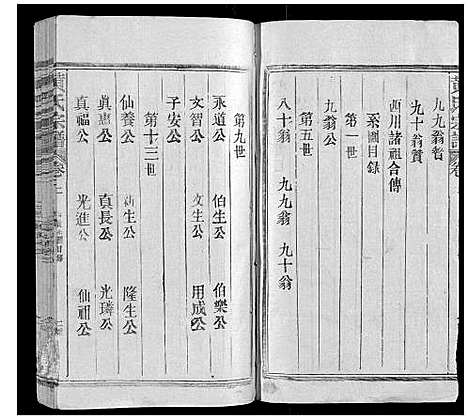 黃氏宗譜
九九翁贊
九十翁贊
西川諸祖合傳
系圖目錄
第一世
九翁公
第五世
八十翁 九九翁 九十翁
第九世
永道公 伯生公 伯樂公
文智公 文生公 用成公
子安公
第十三世
仙養公 新生公 隆生公
真惠公 真長公 光璘公
真福公 光進公 仙祖公
黃氏宗譜